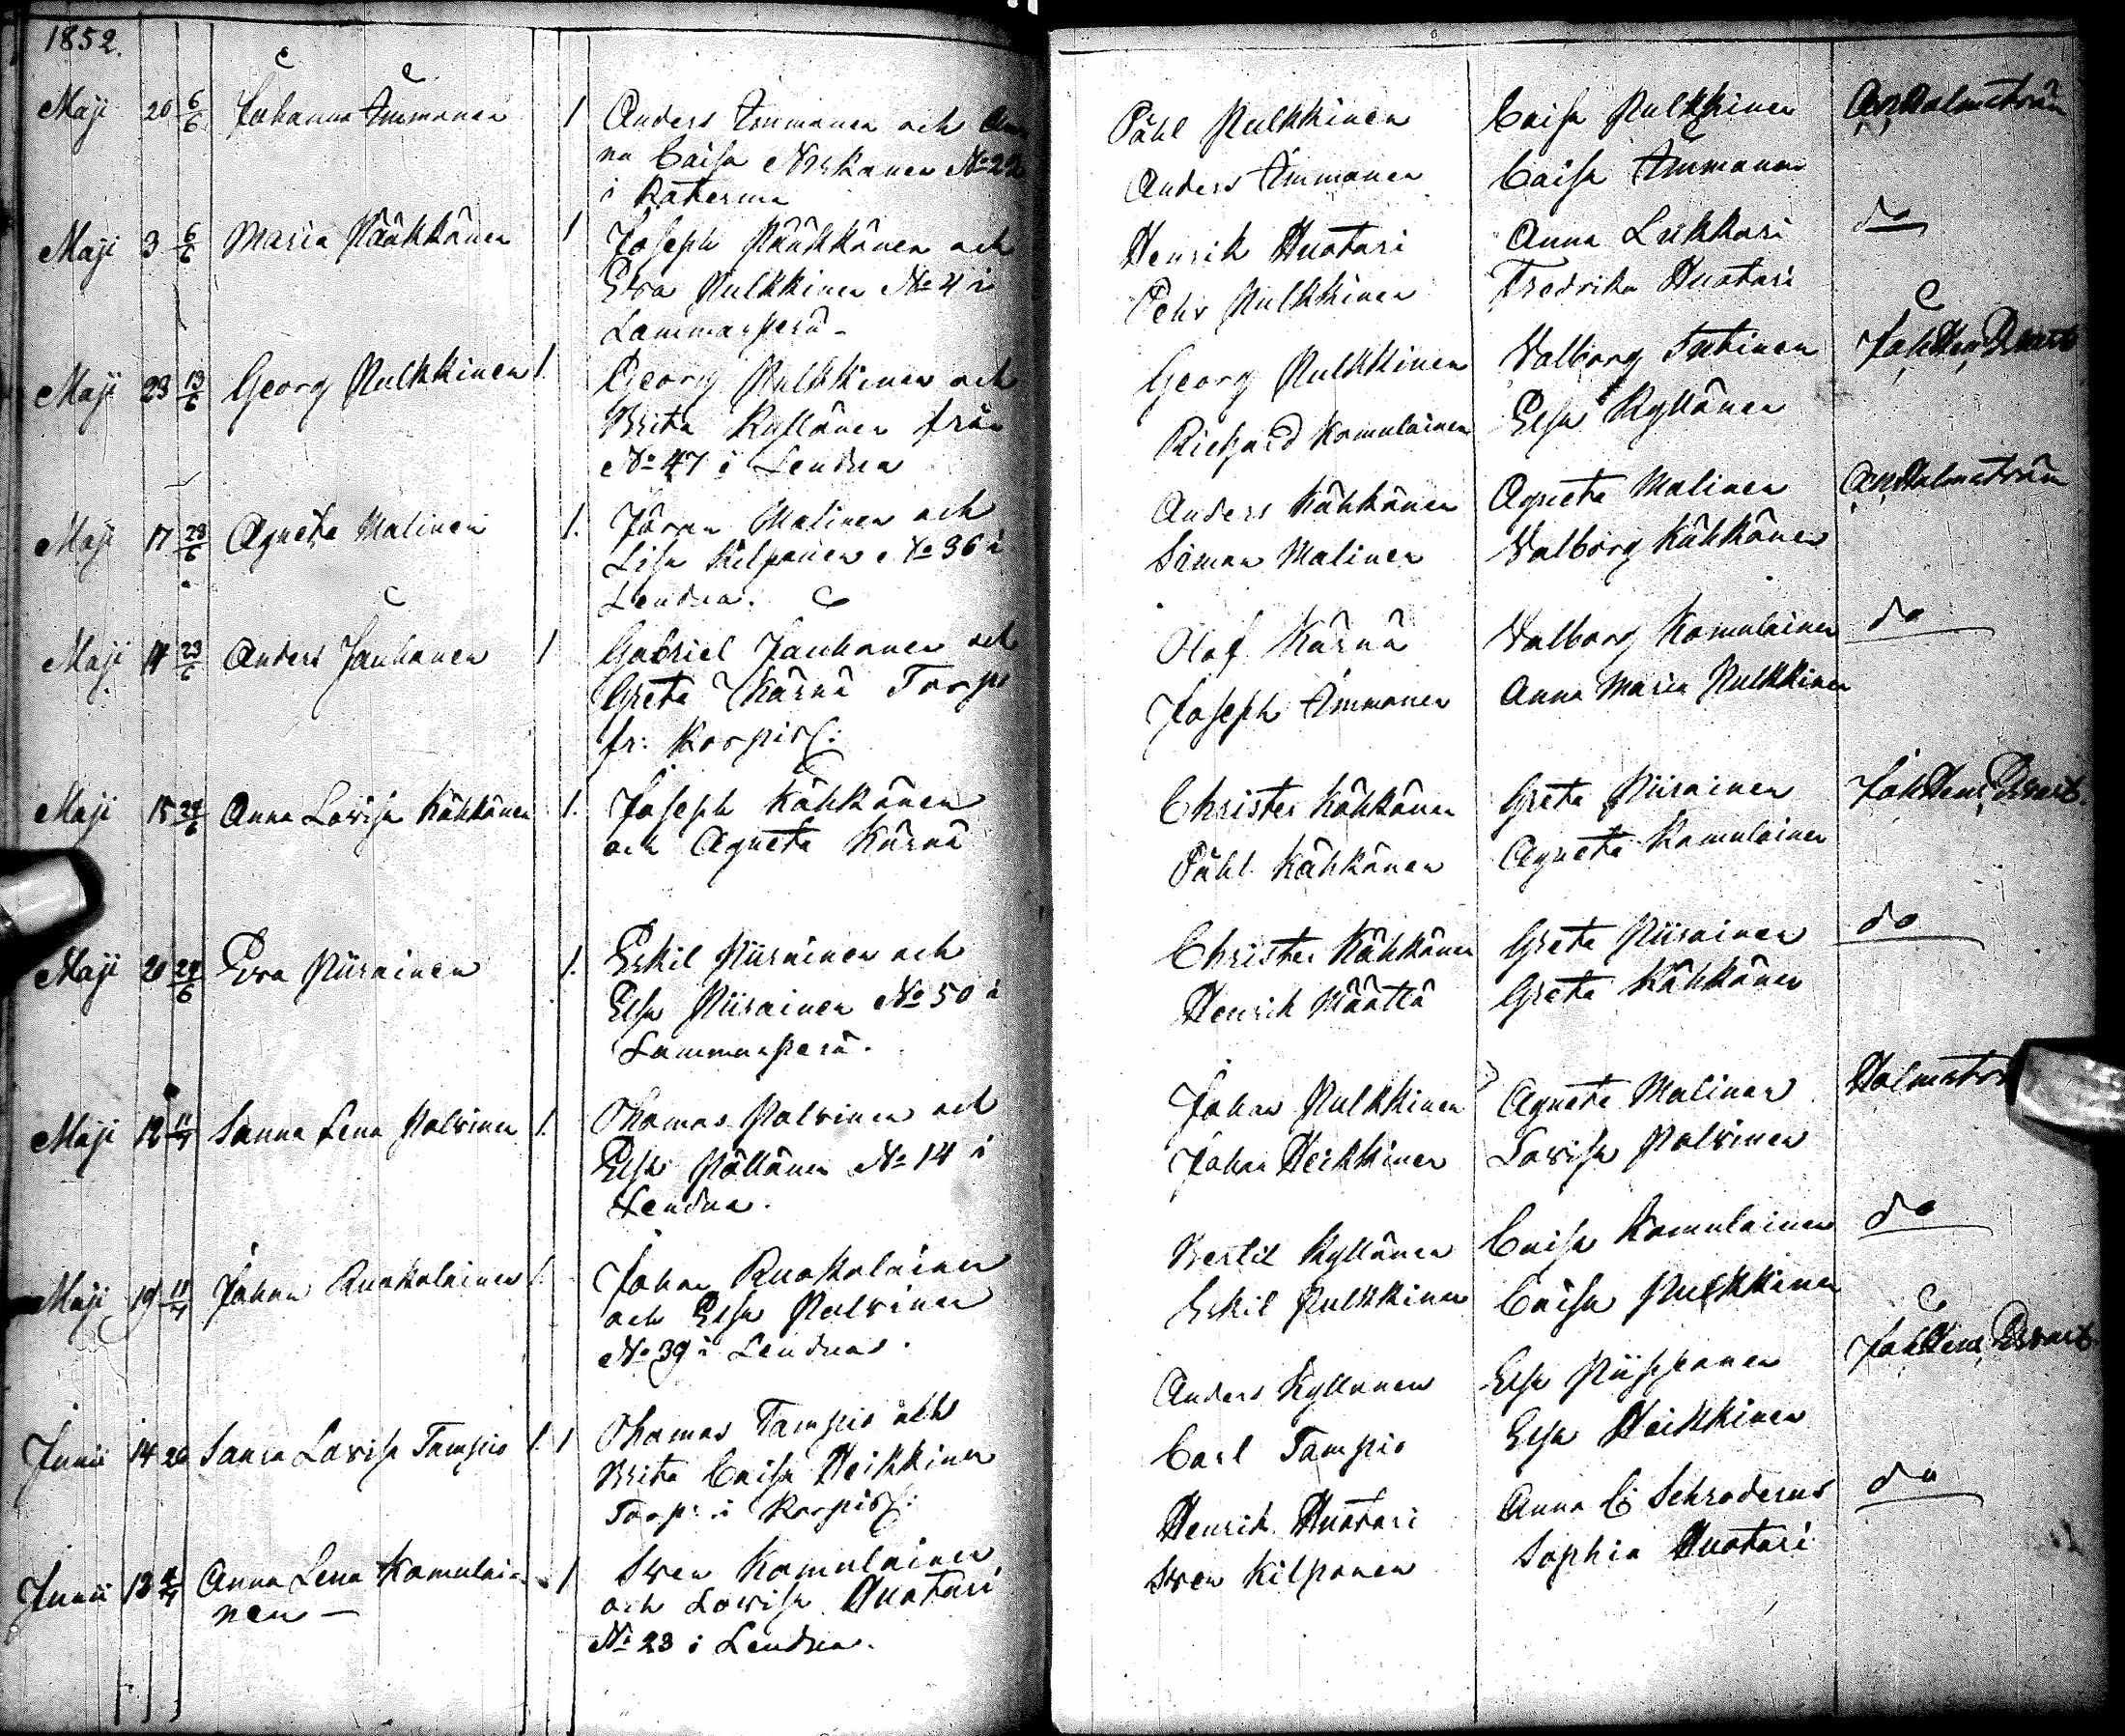 1852.
Maji 20 6/6 Johanna Immonen 1
Anders Immonen och An
na Caisa Neskanen No 22
i Katerma
Maji 3 6/6 Maria Pääkkönen 1
Joseph Pääkkönen och
Eva Pulkkinen No 4 i
Lammasperä
Maji 23 13/6 Georg Pulkkinen 1.
Georg Pulkkinen och
Brita Kyllönen från
No 47 i Lendera
Maji 17 23/6 Agneta Malinen 1.
Jöran Malinen och
Lisa Kilponen No 36 i
Lendera.
Maji 14 23/6 Anders Jauhonen 1
Gabriel Jauhonen och
Greta Kärnä Torp
fr: Korpis:
Maji 15 24/6 Anna Lovisa Kähkönen 1.
Joseph Kähkönen
och Agneta Kärnä
Maji 20 24/6 Eva Piirainen 1.
Eskil Piirainen och
Elsa Piirainen No 50 i
Lammasperä.
Maji 12 11/7 Sanna Lena Polvinen 1.
Thomas Polvinen och
Elsa Pöllänen No 14 i
Lendera.
Maji 19 11/7 Johan Ruokolainen 1.
Johan Ruokolainen
och Elsa Polvinen
No 39 i Lendera.
Junii 14 20 Sanna Lovisa Tampio 1. 1
Thomas Tampio och
Brita Caisa Heikkinen
Torp: i Korpis:
Junii 13 4/7 Anna Lena Komulai- 1
nen
Sven Komulainen
och Lovisa Huotari
No 23 i Lendera.
Påhl Pulkkinen Caisa Pulkkinen And Holmström
Anders Immonen Caisa Immonen
Henrik Huotari Anna Lukkari do
Pehr Pulkkinen Fredrika Huotari
Georg Pulkkinen Valborg Joh Hen
Richard Komulainen Elsa Kyllönen
Anders Kähkönen Agneta Malinen And Holmström
Simon Malinen Valborg Kähkönen
Olof Kärnä Valborg Komulainen do
Joseph Immonen Anna Maria Pulkkinen
Christer Kähkönen Greta Piirainen Joh Hen
Påhl Kähkönen Agneta Komulainen
Christer Kähkönen Greta Piirainen do
Henrik Määttä Greta Kähkönen
Johan Pulkkinen Agneta Malinen Holmströ
Johan Heikkinen Lovisa Polvinen
Bertil Kyllönen Caisa Komulainen do
Eskil Pulkkinen Caisa Pulkkinen
Anders Kyllönen Elsa Piipponen Joh Hen
Carl Tampio Elsa Heikkinen
Henrik Huotari Anna C Schroderus do
Sven Kilponen Sophia Huotari